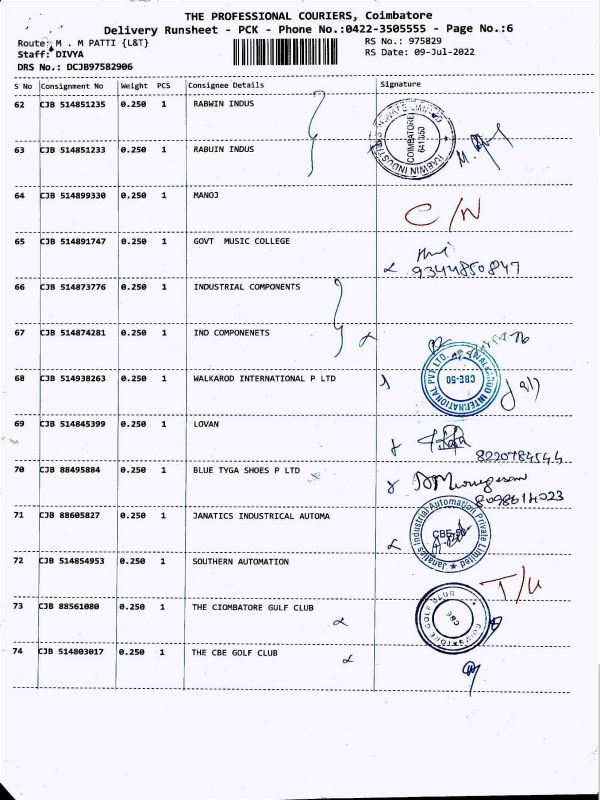 THE PROFESSIONAL COURIERS, Coimbatore
Delivery Runsheet - PCK - Phone No.:0422-3505555 - Page No.:6
Route: M . M PATTI {L&T} RS No.: 975829
Staff: DIVYA RS Date: 09-Jul-2022
DRS No.: DCJB97582906
S No Consignment No Weight PCS Consignee Details Signature
62 CJB 514851235 0.250 1 RABWIN INDUS
RABWIN INDUSTRIES PRIVATE LIMITED
COIMBATORE
641 050
63 CJB 514851233 0.250 1 RABUIN INDUS
64 CJB 514899330 0.250 1 MANOJ
C/N
65 CJB 514891747 0.250 1 GOVT MUSIC COLLEGE
9344850847
66 CJB 514873776 0.250 1 INDUSTRIAL COMPONENTS
67 CJB 514874281 0.250 1 IND COMPONENETS
68 CJB 514938263 0.250 1 WALKAROD INTERNATIONAL P LTD
INTERNATIONAL PVT LTD.
CBE-50
69 CJB 514845399 0.250 1 LOVAN
8220784544
70 CJB 88495884 0.250 1 BLUE TYGA SHOES P LTD
8098614023
71 CJB 88605827 0.250 1 JANATICS INDUSTRICAL AUTOMA
Janatics Industrial Automation Private Limited
72 CJB 514854953 0.250 1 SOUTHERN AUTOMATION
T/U
73 CJB 88561080 0.250 1 THE CIOMBATORE GULF CLUB
GOLF CLUB
CBE
74 CJB 514803017 0.250 1 THE CBE GOLF CLUB